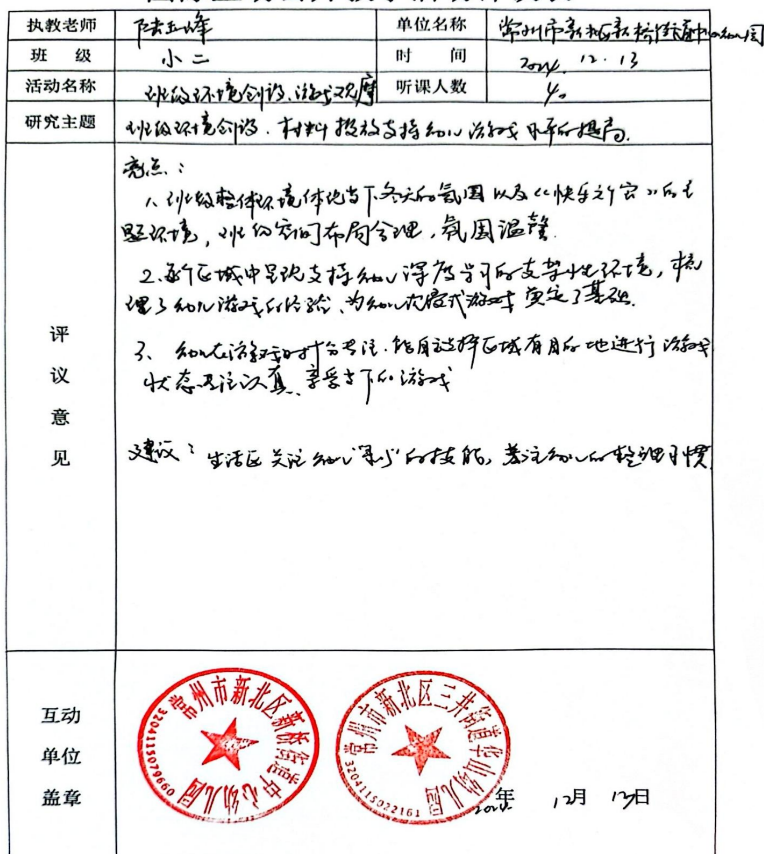 执教老师 陆玉峰 单位名称 常州市新北区新桥街道中心幼儿园
班 级 小二 时 间 2024. 12. 13
活动名称 班级环境创设、游戏观摩 听课人数 40
研究主题 班级环境创设、材料投放支持幼儿游戏水平的提高.
评议意见
亮点:
1、班级整体环境体现当下冬天的氛围以及《快乐之家》的主
题环境,班级空间布局合理,氛围温馨.
2.每个区域中呈现支持幼儿深度学习的支架性环境,梳
理了幼儿游戏的经验、为幼儿沉浸式游戏奠定了基础.
3、幼儿在游戏时十分专注.能自主选择区域有目的地进行游戏
状态专注认真、享受当下的游戏
建议:生活区关注幼儿的技能,关注幼儿的整理习惯
互动
单位
盖章
常州市新北区新桥街道中心幼儿园
3204115079660
常州市新北区三井街道华山幼儿园
3204115022161
2024年 12月 13日